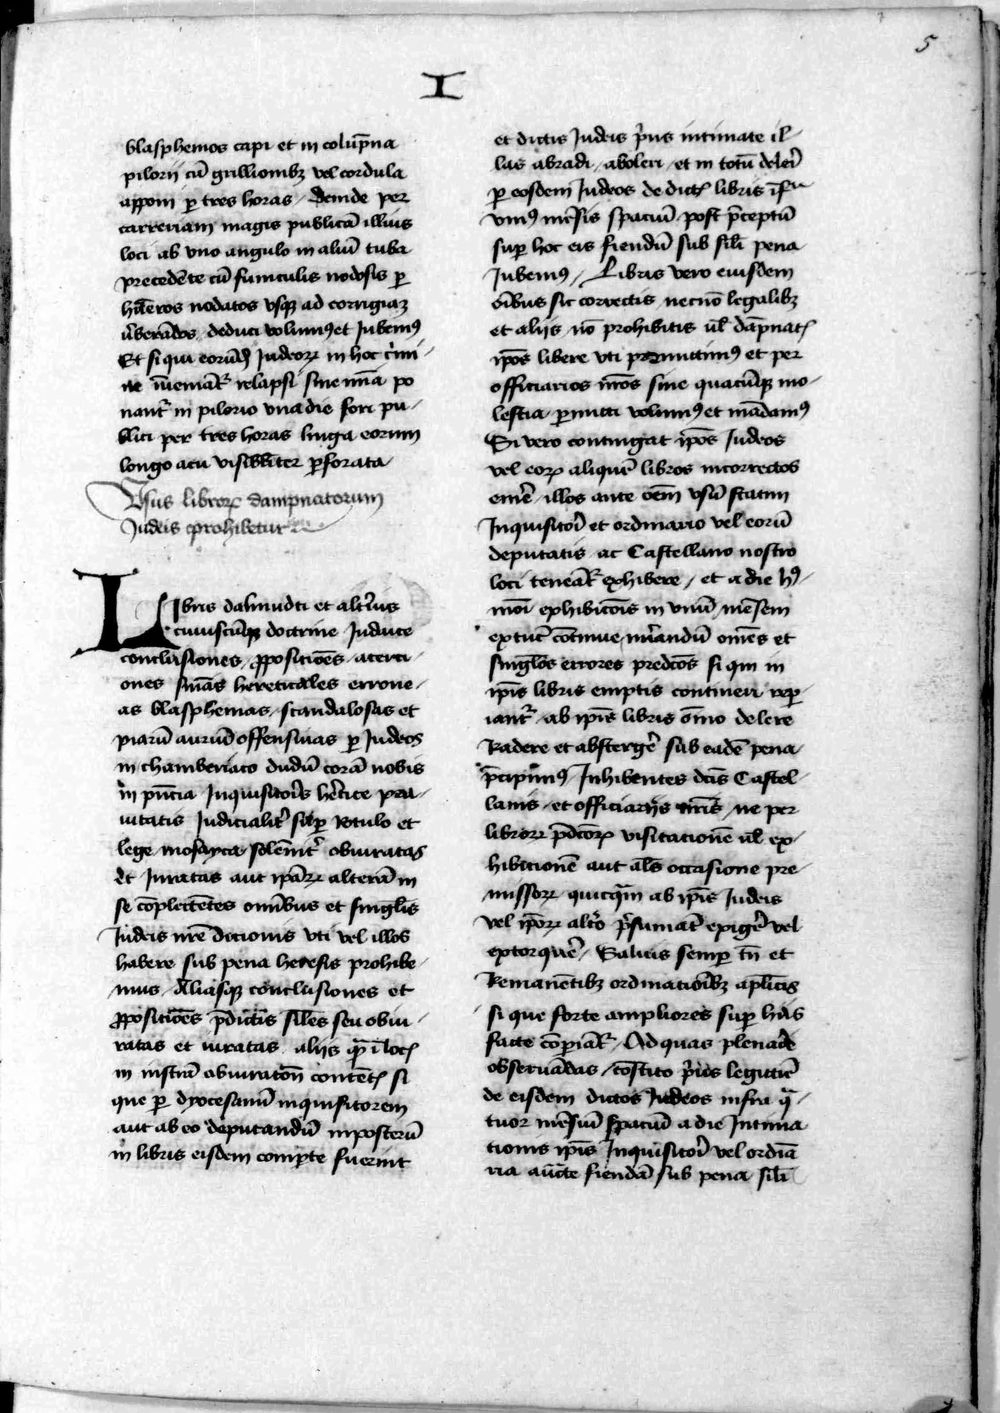 5
I
blasphemos capi et in colūpna
pilorii cū grillionibȝ vel cordula
apponi ꝑ tres horas / Deinde per
carreriam magis publicā illius
loci ab vno angulo in aliū tuba
precedēte cū funiculis nodosis ꝑ
hūeros nodatos vsqȝ ad corrigiaȝ
v̄berādos deduci volumꝰ et Jubemꝰ
Et si qui eorūdȝ Judeoꝝ in hoc c̄mi-
ne īueniāt᷑ relapsi sine mīa po
nāt᷑ in pilorio vna die fori pu-
blici per tres horas linga eorum
longo acu visibiliter ꝑforata
Usus libroꝝ dampnatorum
Judeis prohibetur
LIbris dalmudti et alt̄ius
cuiuscūqȝ doctrine Judaice
conclusiones ꝓpositiōes aterti-
ones sm̄as hereticales errone-
as blasphemas / scandalosas et
piarū aurium offensiuas ꝑ Judeos
in chamberiaco dudū corā nobis
in pn̄cia Inquisitoris he᷑tice pra-
uitatis Judicialit᷑ suꝑ Rotulo et
lege mosayca solēnit᷑ obiuratas
et Juratas aut ip̄aꝝ alterā in
se cōplectētes omībus et singl̄is
Judeis nr̄e dicionis vti vel illos
habere sub pena heresis prohibe-
mus / Aliasqȝ conclusiones et
ꝓpositiōes p̄dictis siles seu obiu-
ratas et iuratas aliis
in instrū abiuratōn contēt
que ꝑ dyocesanū inquisitorem
aut ab eo deputandū inposterū
in libris eisdem comꝑte fuerint
et dictis Judeis p̄us intimate il-
las abradi / aboleri / et in totū deleri
ꝑ eosdem Judeos de dict̄ libris īfra
vniꝰ mēsis spaciū post p̄ceptū
suꝑ hoc eis fiendū sub sili pena
Jubemꝰ / Libris vero eiusdem
oībus sic correctis necnō legalibȝ
et aliis nō prohibitis ul̄ dāpnat̄
ip̄os libere vti permittimꝰ et per
officiarios nr̄os sine quacūqȝ mo-
lestia ꝑmitti volumꝰ et mādamꝰ
Si vero contingat ip̄os Judeos
vel eoꝝ aliquē libros incorrectos
emē illos ante oēm vsū statim
Inquisitori et ordinario vel eorū
deputatis ac Castellano nostro
loci teneāt᷑ exhibere / et a die hꝰ-
moī exhibicōis in vnū mēsem
extūc cōtinue nūerandū omēs et
singlōs errores predcōs si qui in
ip̄is libris emptis contineri reꝑ-
iant᷑ / ab ip̄is libris ōnio delere
Radere et abstergē sub eadē pena
p̄cipimꝰ Inhibentes dcīs Castel-
lanis et officiariis nr̄is ne per
libroꝝ p̄dcoꝝ visitacionē ul̄ ex-
hibicionē aut al̄s occasione pre-
missoꝝ quicq̄m ab ip̄is Judeis
vel ip̄oꝝ alt̄o p̄sumāt exigē vel
extorquē / Saluis semꝑ tn̄ et
Remanētibȝ ordinatiōibȝ ap̄licis
si que forte ampliores suꝑ hiis
facte cōꝑiāt᷑ Ad quas plenarie
obseruādas /
de eisdem dictos Judeos infra q̄-
tuor mēsiū spaciū a die Intima
tionis ip̄is Inquisitori vel ordiā
ria fiendā sub pena sili